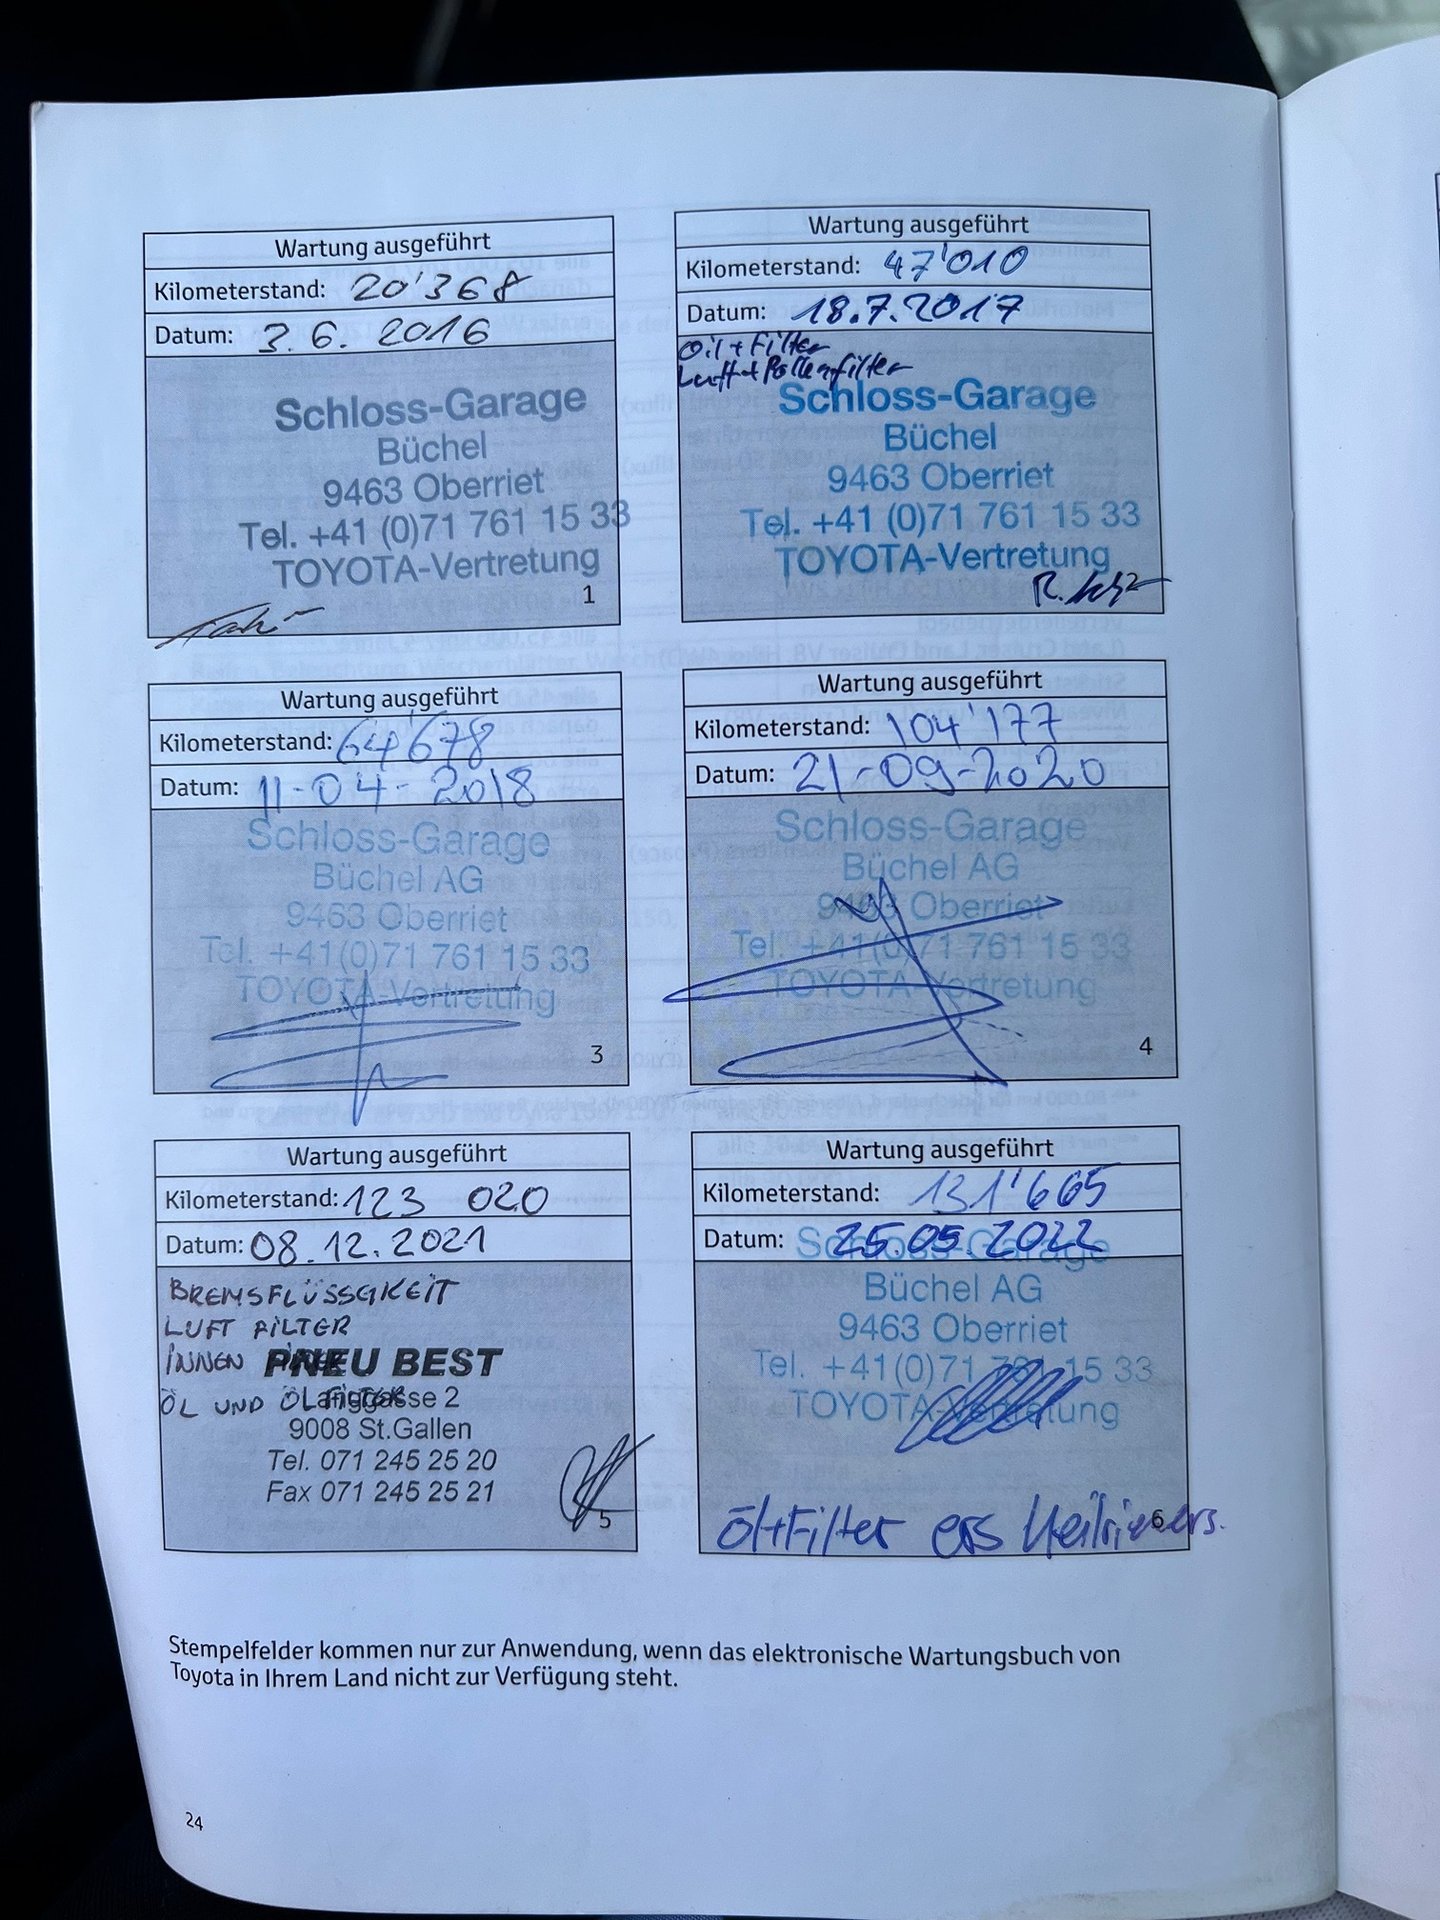 Wartung ausgeführt
Kilometerstand: 20'368
Datum: 3.6. 2016
Schloss-Garage
Büchel
9463 Oberriet
Tel. +41 (0)71 761 15 33
TOYOTA-Vertretung
1
Wartung ausgeführt
Kilometerstand: 47'010
Datum: 18.7.2017
Oil + Filter
Luft + Pollenfilter
Schloss-Garage
Büchel
9463 Oberriet
Tel. +41 (0)71 761 15 33
TOYOTA-Vertretung
Wartung ausgeführt
Kilometerstand: 64'678
Datum: 11-04-2018
Schloss-Garage
Büchel AG
9463 Oberriet
Tel. +41(0)71 761 15 33
TOYOTA-Vertretung
3
Wartung ausgeführt
Kilometerstand: 104'177
Datum: 21-09-2020
Schloss-Garage
Büchel AG
9463 Oberriet
Tel. +41(0)71 761 15 33
TOYOTA-Vertretung
4
Wartung ausgeführt
Kilometerstand: 123 020
Datum: 08.12.2021
BREMSFLÜSSGKEIT
LUFT FILTER
INNEN
PNEU BEST
ÖL UND ÖL FILTER
Langgasse 2
9008 St.Gallen
Tel. 071 245 25 20
Fax 071 245 25 21
5
Wartung ausgeführt
Kilometerstand: 131'665
Datum: 25.05.2022
Schloss-Garage
Büchel AG
9463 Oberriet
Tel. +41(0)71 761 15 33
TOYOTA-Vertretung
Öl+Filter ers
6
Stempelfelder kommen nur zur Anwendung, wenn das elektronische Wartungsbuch von
Toyota in Ihrem Land nicht zur Verfügung steht.
24